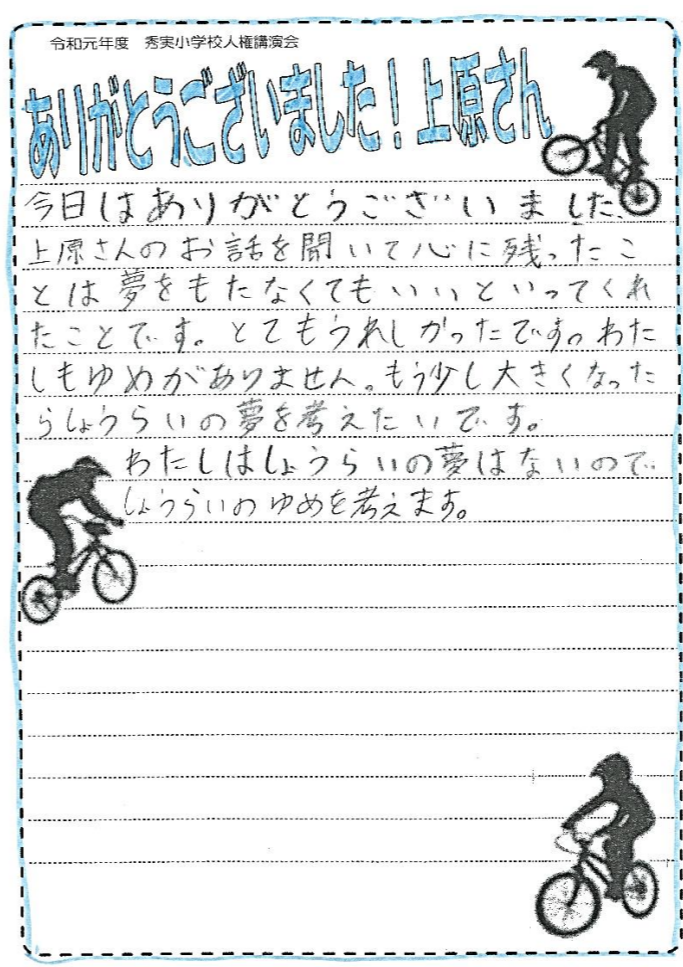 令和元年度　秀実小学校人権講演会
ありがとうございました！上原さん
今日はありがとうございました。
上原さんのお話を聞いて心に残ったこ
とは夢をもたなくてもいいといってくれ
たことです。とてもうれしかったです。わた
しもゆめがありません。もう少し大きくなった
らしょうらいの夢を考えたいです。
わたしはしょうらいの夢はないので
しょうらいのゆめを考えます。